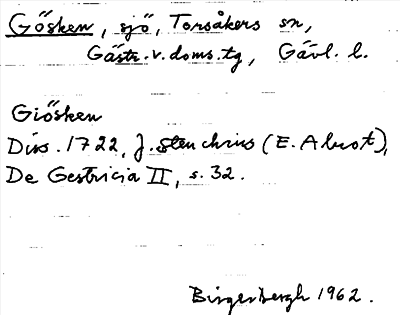 Gösken, sjö, Torsåkers sn,
Gästr. v. doms. tg, Gävl. l.
Giösken
Diss. 1722, J. Stenchius (E. Alroot),
De Gestricia II, s. 32.
Birger Bergh 1962.